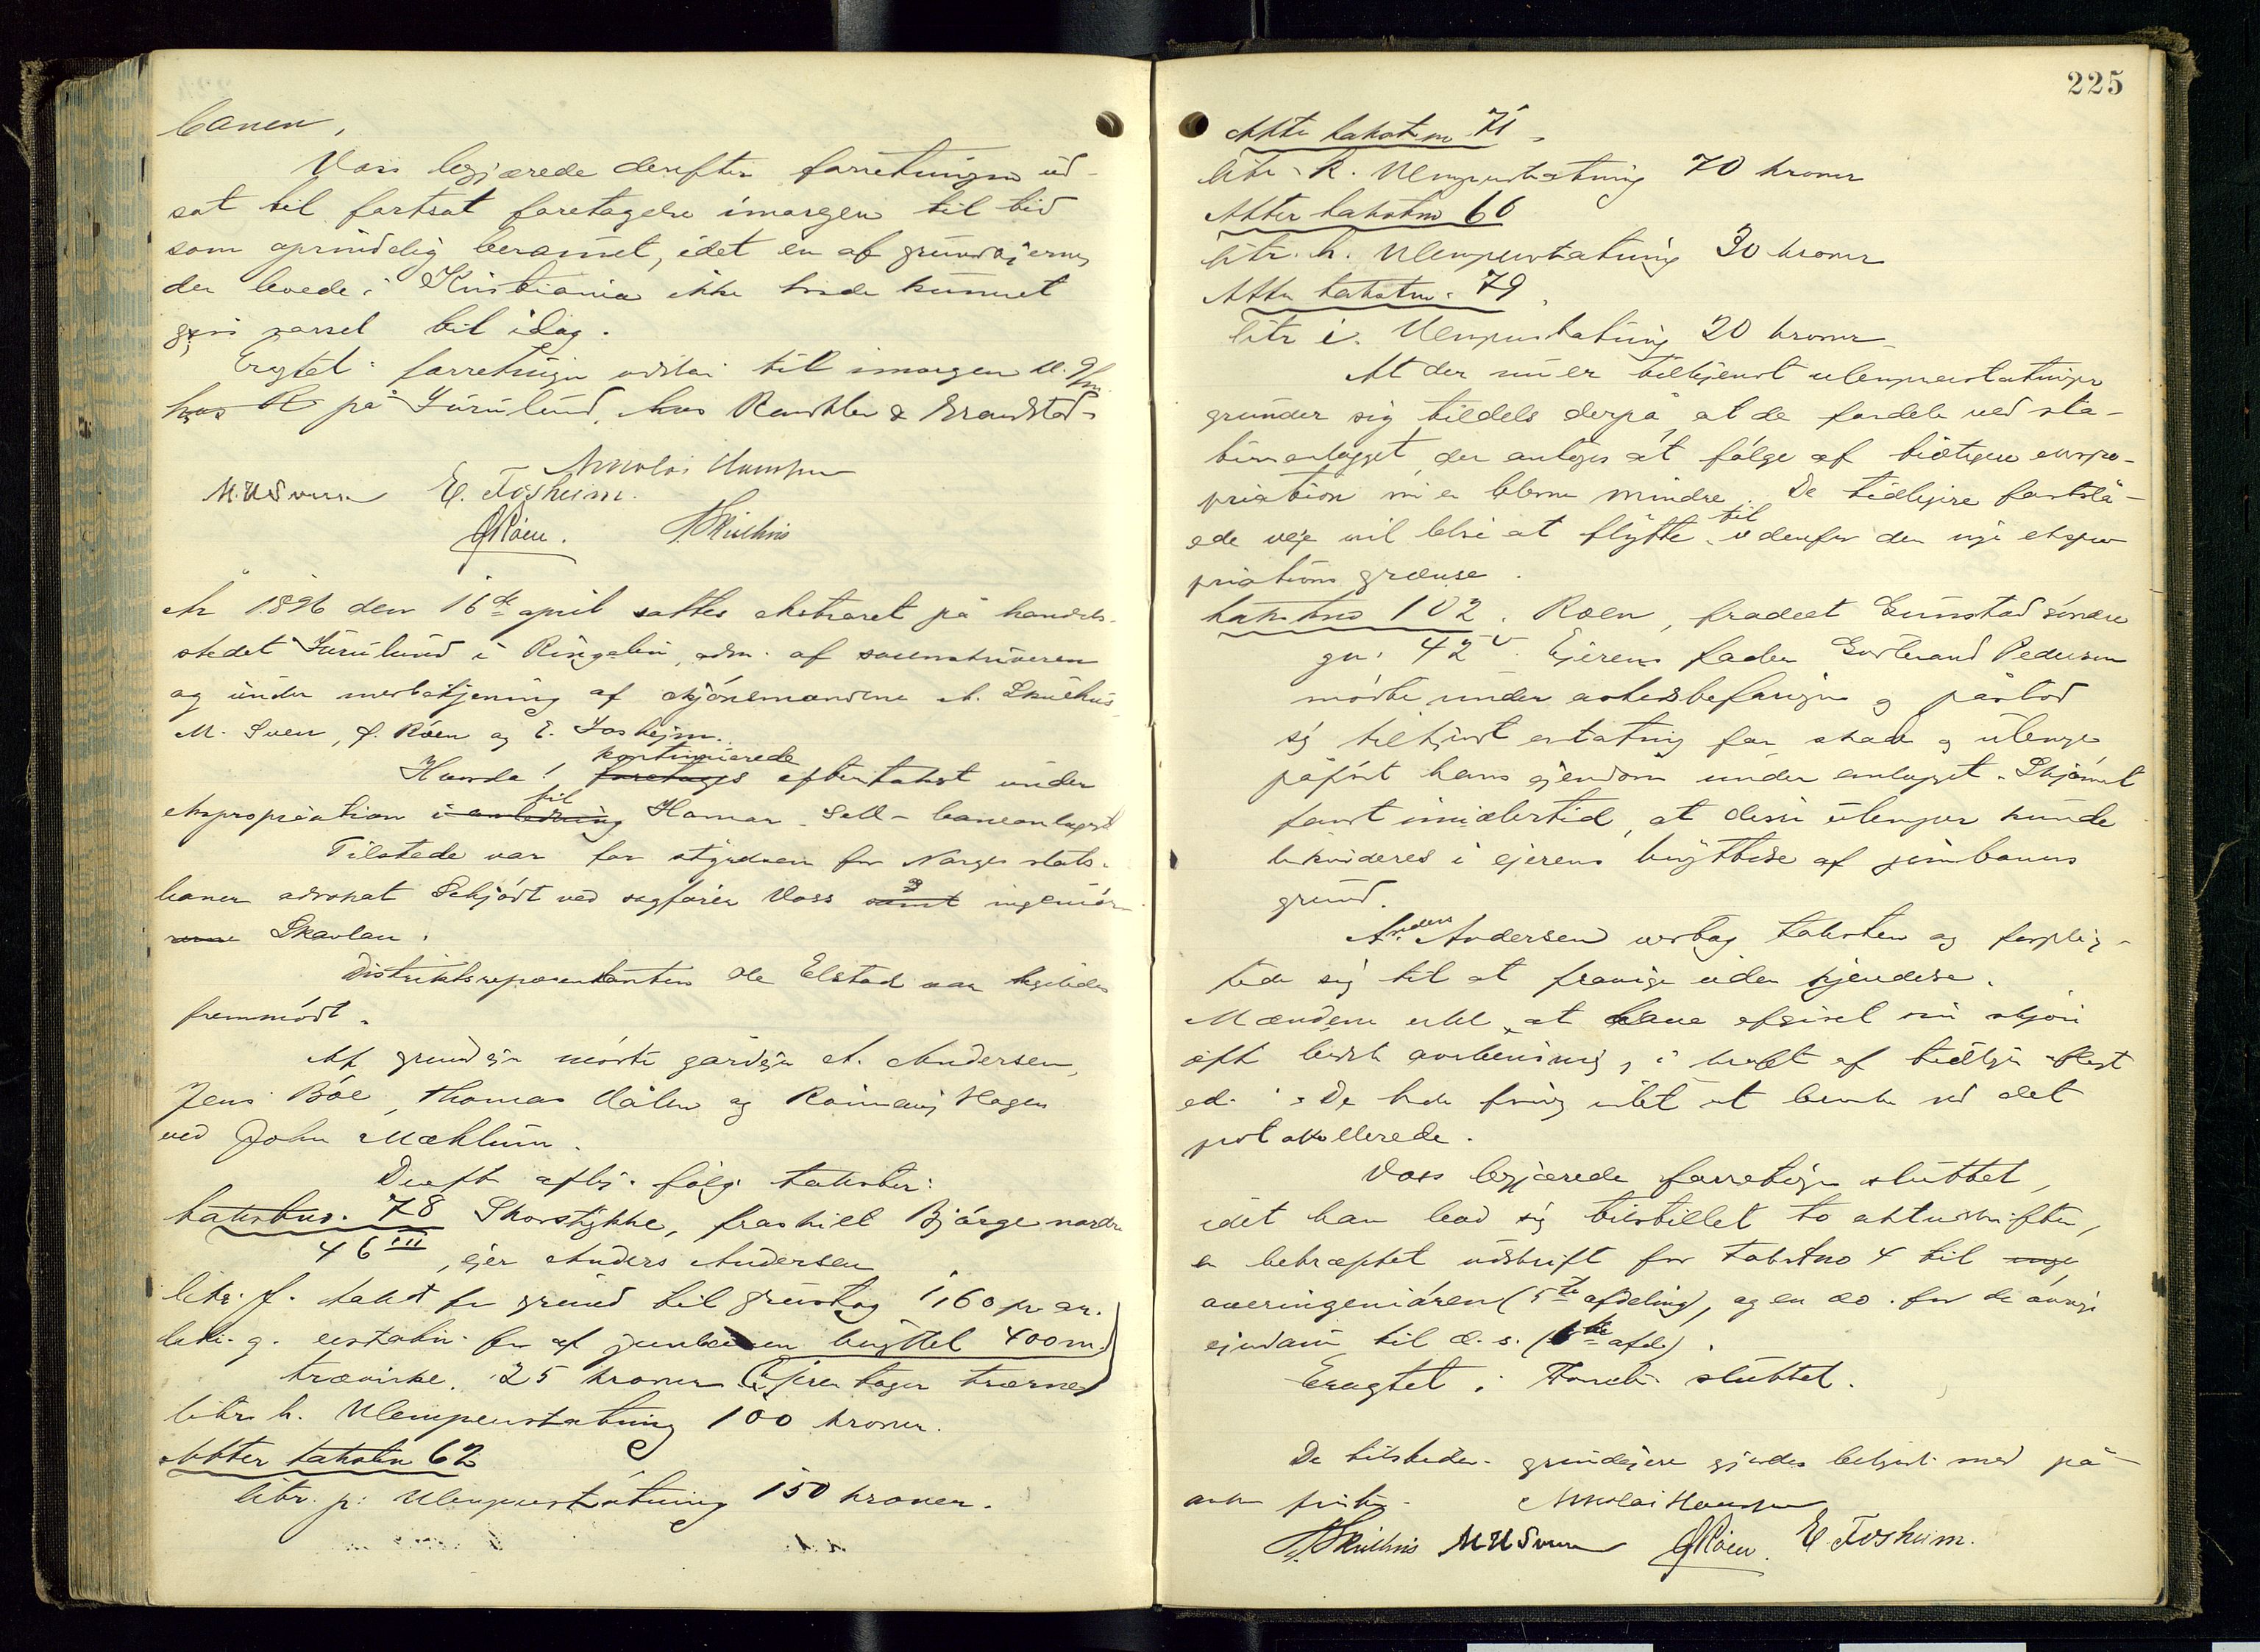 banen,
Voss begjærede derefter forretningen ud-
sat til fortsat foretagelse imorgen til tid
som oprindelig berammet, idet en af grundejerne
der levede i Kristiania ikke havde kunnet
gives varsel til idag.
Eragtet: forretningen udstår til imorgen kl. 9 fm.
på Furulund, hos
Nikolai Hansen
M. H. Sveen E. Fosheim.
J. Röen. A. Skulhus
År 1896 den 16de april sattes ekstraret på handels-
stedet Furulund i Ringebu, adm. af sorenskriveren
og under medbetjening af skjönsmændene A. Skulhus
M. Sveen, J. Röen og E. Fosheim.
Hvorda! kontinuerede foretages eftertakst under
ekspropriation i anledning til Hamar-Sell-baneanlægget
Tilstede var for styrelsen for Norges stats-
baner advokat Schjödt ved sagförer Voss samt og ingeniör
Skavlan.
Distriktsrepresentanten Ole Elstad var ligeledes
fremmödt.
Af grundejere mödte gårdejer A. Andersen,
Jens Böe, Thomas Hålen og Hagen
ved John Mæhlum.
Derefter afhj. fölg. takster:
takstno. 78 Skovstykke, fraskilt Bjørge nordre
46 III, ejer Anders Andersen
litr. f. takst for grund til grustag 1,60 pr. ar.
litr. g. erstatn. for af jernbanen benyttet 400 m.
trævirke. 25 kroner (Ejeren tager trærne)
litr. h. Ulempeerstatning 100 kroner.
Atter takstn 62
litr. p: Ulempeerstatning 150 kroner.
225
Atter takstn 71
litr. k. Ulempeerstatning 70 kroner
Atter takstno 66
litr. h. Ulempeerstatning 30 kroner
Atter takstn. 79
litr i. Ulempeerstatning 20 kroner
At der nu er tilkjendt ulempeerstatninger
grunder sig tildels derpå, at de fordele ved sta-
tionsanlægget, der antoges at fölge af tidligere expro-
priation nu er blevne mindre. De tidligere fastslå-
ede veje vil blive at flytte til udenfor den nye ekspro-
priations grænse.
takstno 102. Roen, fradelt Gunstad söndre
gn. 42 V. Ejerens fader Gudbrand Pedersen
mödte under åstedsbefaringen og påstod
sig tilkjendt erstatning for skade og ulempe
påfört hans ejendom under anlægget. Skjönnet
fandt imidlertid, at disse ulemper kunde
likvideres i ejerens benyttelse af jernbanens
grund.
Anders Andersen vedtog taksten og forplig-
tede sig til at fravige uden kjendelse.
Mændene erkl. at have afgivet sin skjön
eft bedste overbevisning, i kraft af tidligere aflagt
ed. De havde forövrig intet at bemerke ved det
protokollerede.
Voss begjærede forretningen sluttet,
idet han bad sig tilstillet to aktudskrifter,
en bekræftet udskrift for takstno 4 til
overingeniören (5te afdeling), og en do. for de övrige
ejendom. til d. s. (6te afd).
Eragtet: Forretn. sluttet.
De tilstedev. grundejere gjordes bekjendt med på-
anke fristen.
Nikolai Hansen
A. Skulhus M H Sveen J. Röen. E. Fosheim.